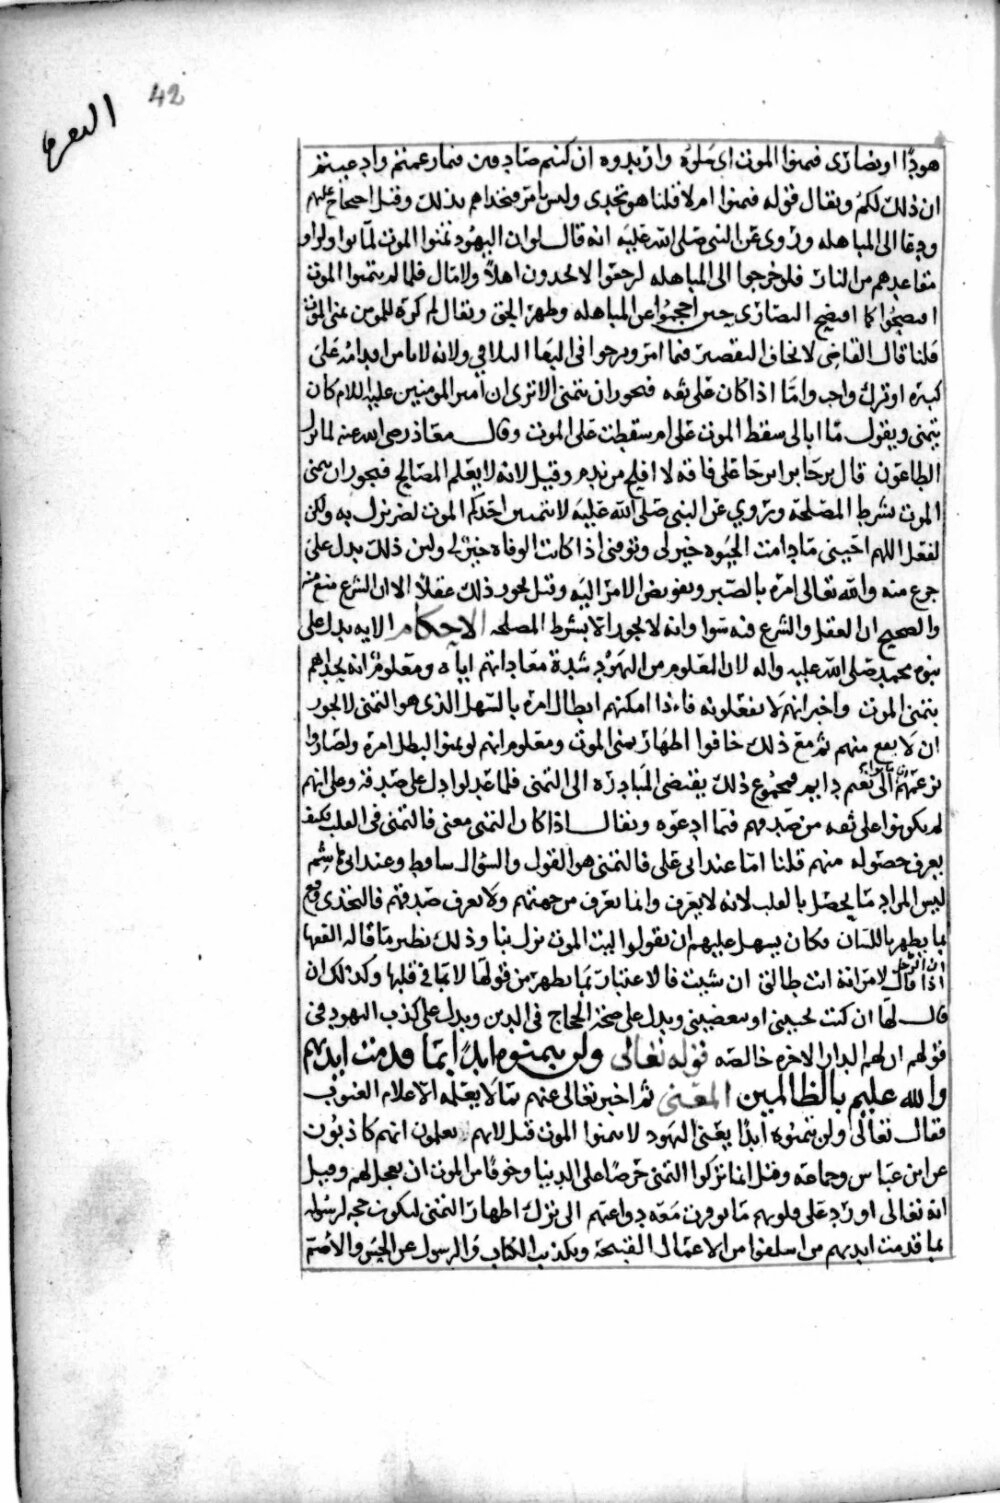 42
البقرة
هودًا او نصارى فتمنوا الموت اي سلوه واريدوه ان كنتم صادقين فيما زعمتم وادعيتم
ان ذلك لكم ويقال قوله فتمنوا امر لا قلنا هو تحدي وليس بامر فتحداهم بذلك وقيل احتجاج عليهم
ودعا الى المباهله وروى عن النبي صلى الله عليه انه قال لو ان اليهود تمنوا الموت لماتوا ولراوا
مقاعدهم من النار فلو خرجوا الى المباهله لرجعوا لا يجدون اهلاً ولا مال فلما لم يتمنوا الموت
افتضحوا كما افتضح النصارى حين احجموا عن المباهله وظهر الحق ويقال لم كره للمومن تمني الموت
قلنا قال القاضي لانه يخاف التقصير فيما امر ويرجوا في البقا التلافي ولانه لا يامن اقدامه على
كبيره او ترك واجب واما اذا كان على ثقه فيجوز ان يتمنى الا ترى ان امير المومنين عليه السلام كان
يتمنى ويقول ما ابالي سقط الموت علي ام سقطت على الموت وقال معاذ رضي الله عنه لما نزل
الطاعون قال مرحبا مرحبا على فاقه لا افلح من ندم وقيل لانه لا يعلم المصالح فيجوز ان يتمنى
الموت بشرط المصلحة وتروي عن النبي صلى الله عليه لا يتمنين احدكم الموت لضر نزل به ولكن
ليقل اللهم احيني ما دامت الحيوه خير لي وتوفني اذا كانت الوفاه خير لي ولان ذلك يدل على
جزع منه والله تعالى امره بالصبر وتفويض الامر اليه وقيل يجوز ذلك عقلاً الا ان الشرع منع منه
والصحيح ان العقل والشرع فيه سوا وانه لا يجوز الا بشرط المصلحه الاحكام الايه يدل على
نبوة محمد صلى الله عليه واله لان المعلوم من اليهود شدة معاداتهم اياه ومعلوم انه تحداهم
بتمني الموت واخبر انهم لا يفعلونه فاذا امكنهم ابطال امره بالسهل الذي هو التمني لا يجوز
ان لا يقع منهم ثم مع ذلك خافوا اظهار تمني الموت ومعلوم انهم لو تمنوا لبطل امره ولصاروا
بزعمهم الى نعيم دايم فمجموع ذلك يقتضي المبادرة الى التمني فلما عدلوا دل على صدقه وعلى انهم
لم يكونوا على ثقه من صدقهم فيما ادعوه ويقال اذا كان التمني معنى فالتمني في القلب فكيف
يعرف حصوله منهم قلنا اما عند ابي علي فالتمني هو القول والسؤال ساقط وعند ابي هاشم
ليس المراد ما يحصل بالقلب لانه لا يعرف وانما يعرف من جهتهم ولا يعرف صدقهم فالتحدي وقع
بما يظهر باللسان وكان يسهل عليهم ان يقولوا ليت الموت نزل بنا وذلك نظير ما قاله الفقها
ان الرجل اذا قال لامراته انت طالق ان شيت فالاعتبار بما يظهر من قولها لا بما في قلبها وكذلك ان
قال لها ان كنت تحبيني او تبغضيني ويدل على صحة الحجاج في الدين ويدل على كذب اليهود في
قولهم ان لهم الدار الاخره خالصه قوله تعالى ولن يتمنوه ابدًا بما قدمت ايديهم
والله عليم بالظالمين المعنى ثم اخبر تعالى عنهم بما لا يعلمه الا علام الغيوب
فقال تعالى ولن يتمنوه ابدًا يعني اليهود لا يتمنوا الموت قيل لانهم يعلمون انهم كاذبون
عن ابن عباس وجماعه وقيل انما تركوا التمني حرصًا على الدنيا وخوفًا من الموت ان يعجل لهم وقيل
انه تعالى اورد على قلوبهم ما توفرت معه دواعيهم الى ترك اظهار التمني ليكون حجه لرسوله
بما قدمت ايديهم من اسلفوا من الاعمال القبيحة وبكذب الكتاب والرسول عن الحسن والاصم